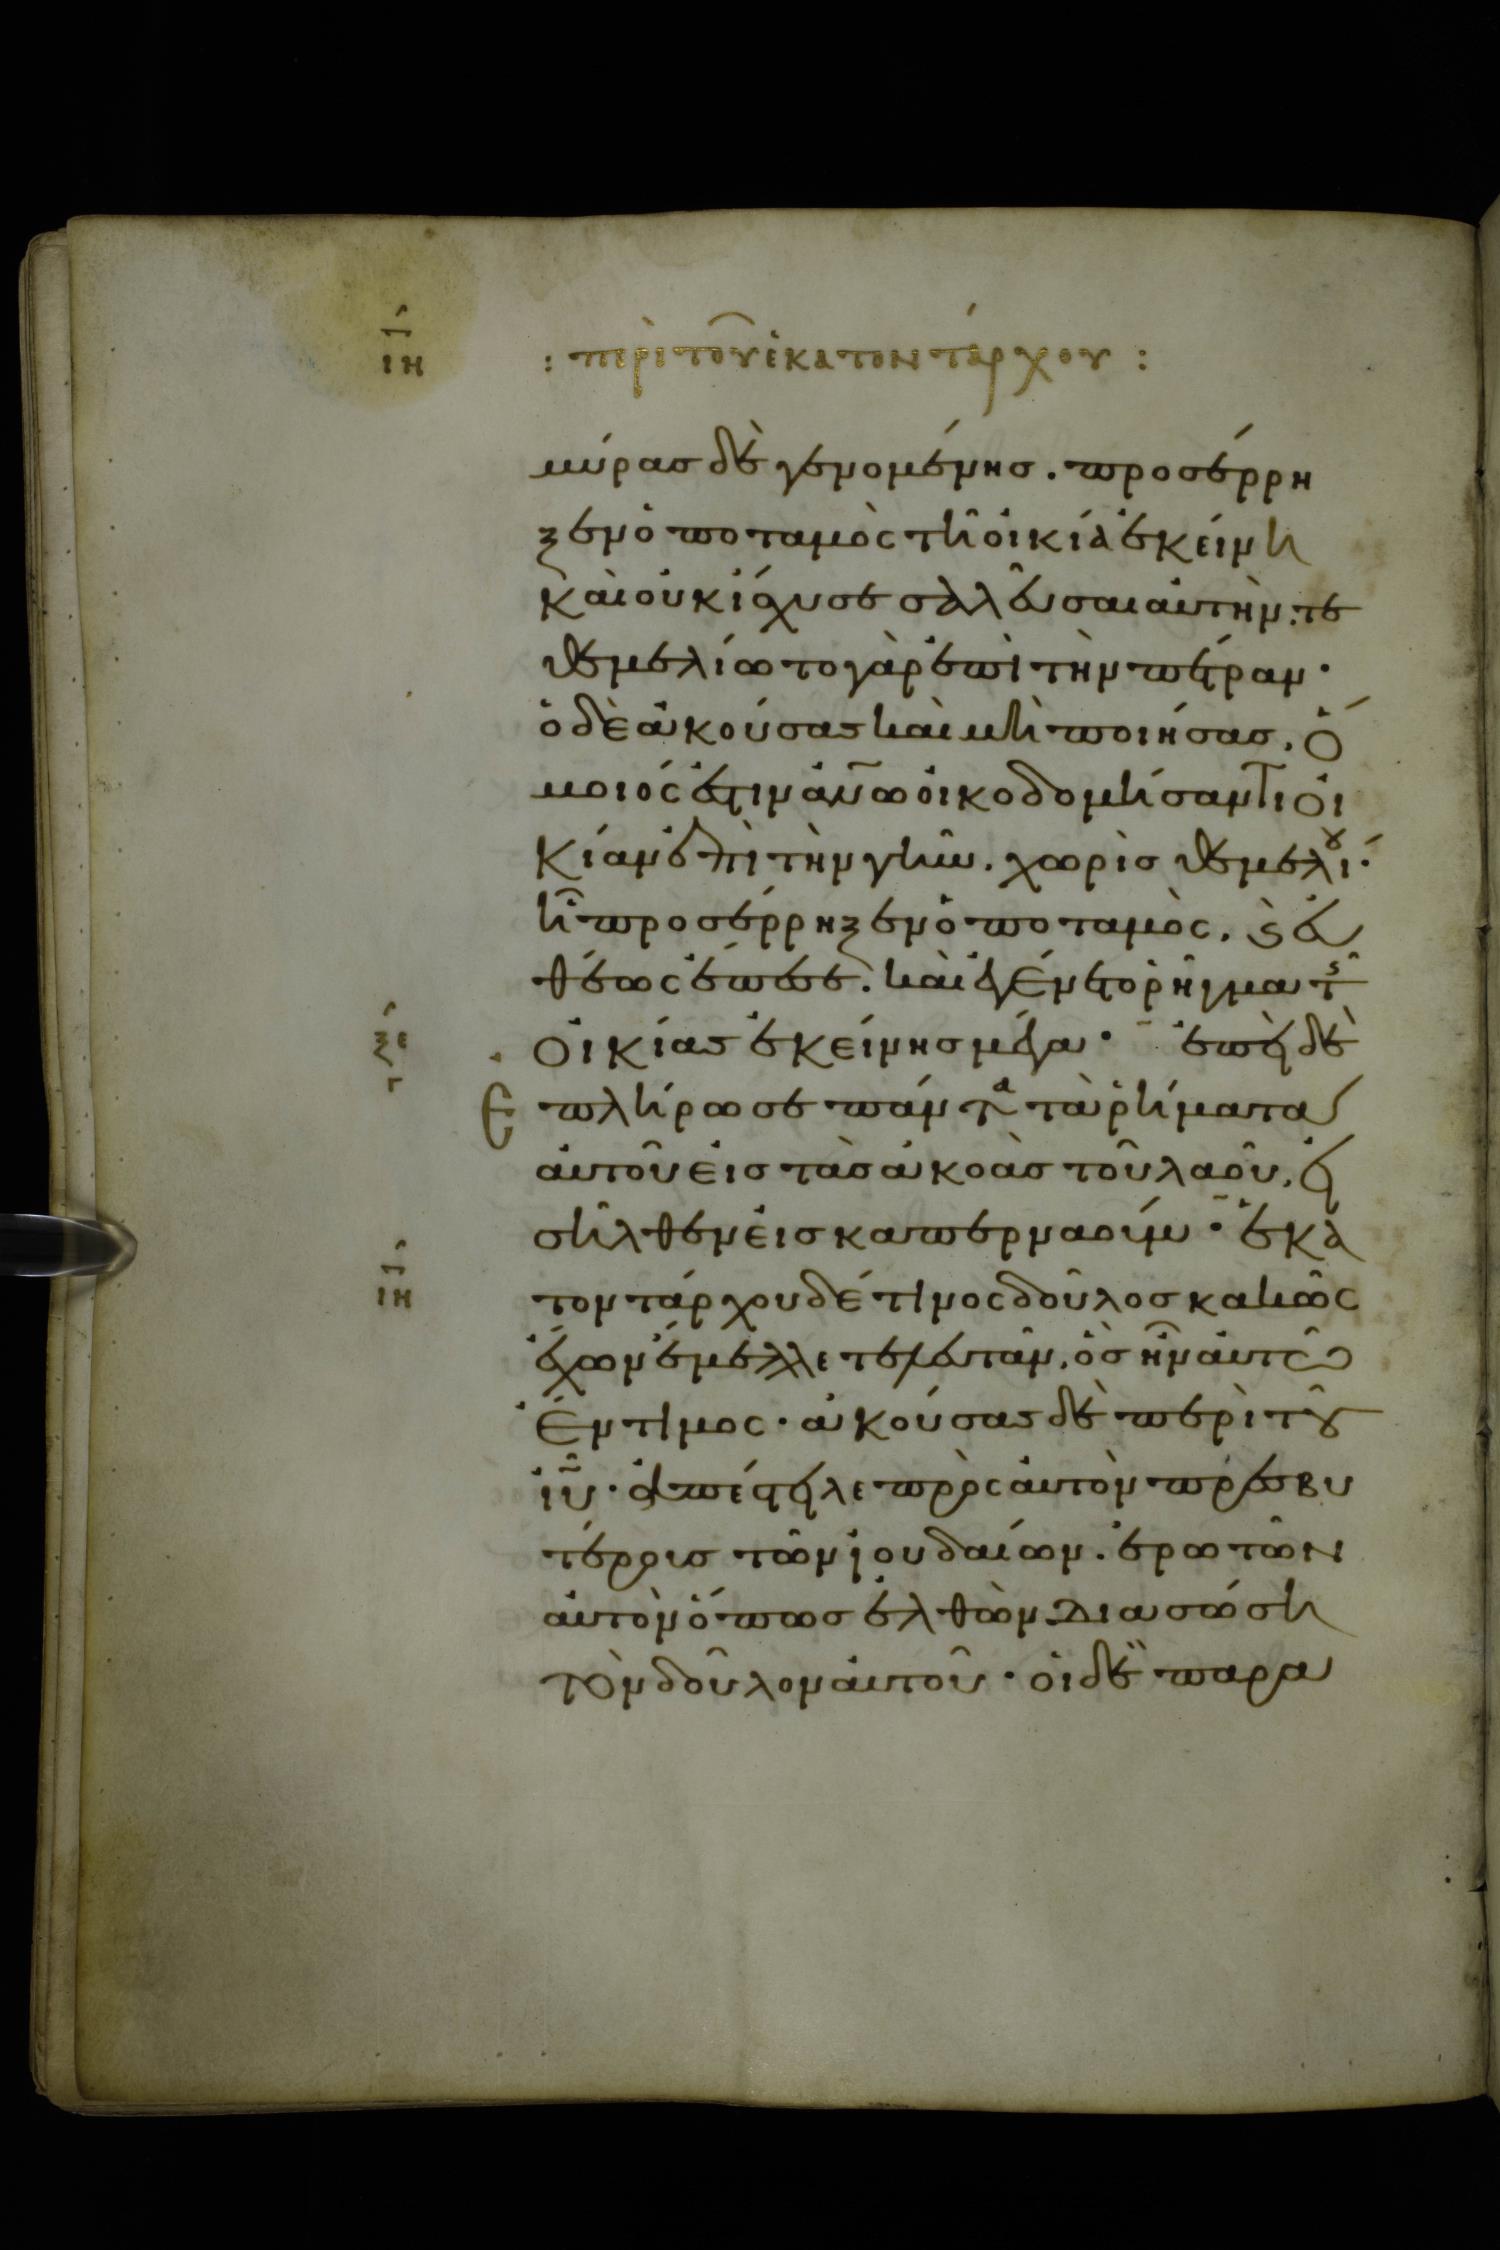 ιη : περὶ τοῦ ἑκατοντάρχου :
μύρας δὲ γενομένης. προσέρρη
ξεν ὁ ποταμὸς τῆ οἰκία ἐκείνη
καὶ οὐκ ἴσχυσε σαλεῦσαι αὐτήν. τε
θεμελίωτο γὰρ ἐπὶ τὴν πέτραν·
ὁ δὲ ἀκούσας καὶ μὴ ποιήσας, ὅ
μοιός ἐστιν ἀνω οἰκοδομήσαντι οἰ
κίαν ἐπὶ τὴν γῆν. χωρὶς θεμελίου·
ἧ προσέρρηξεν ὁ ποταμὸς, καὶ εὐ
θέως ἔπεσε. καὶ ἐγένετο ῥῆγμα τῆς
οἰκίας ἐκείνης μέγα· ἐπεὶ δὲ
ξε
γ
Ε πλήρωσε πάντα τὰ ῥήματα
αὐτοῦ εἰς τὰς ἀκοὰς τοῦ λαοῦ, εἰ
σῆλθεν εἰς καπερναούμ· ἑκα
ιη τοντάρχου δέ τινος δοῦλος κακῶς
ἔχων ἔμελλε τελευτᾶν, ὃς ἦν αὐτῶ
ἔντιμος· ἀκούσας δὲ περὶ τοῦ
ιυ· ἀπέστειλε πρὸς αὐτὸν πρεσβυ
τέρους τῶν ἰουδαίων. ἐρωτῶν
αὐτὸν ὅπως ἐλθὼν διασώση
τὸν δοῦλον αὐτοῦ· οἱ δὲ παρα